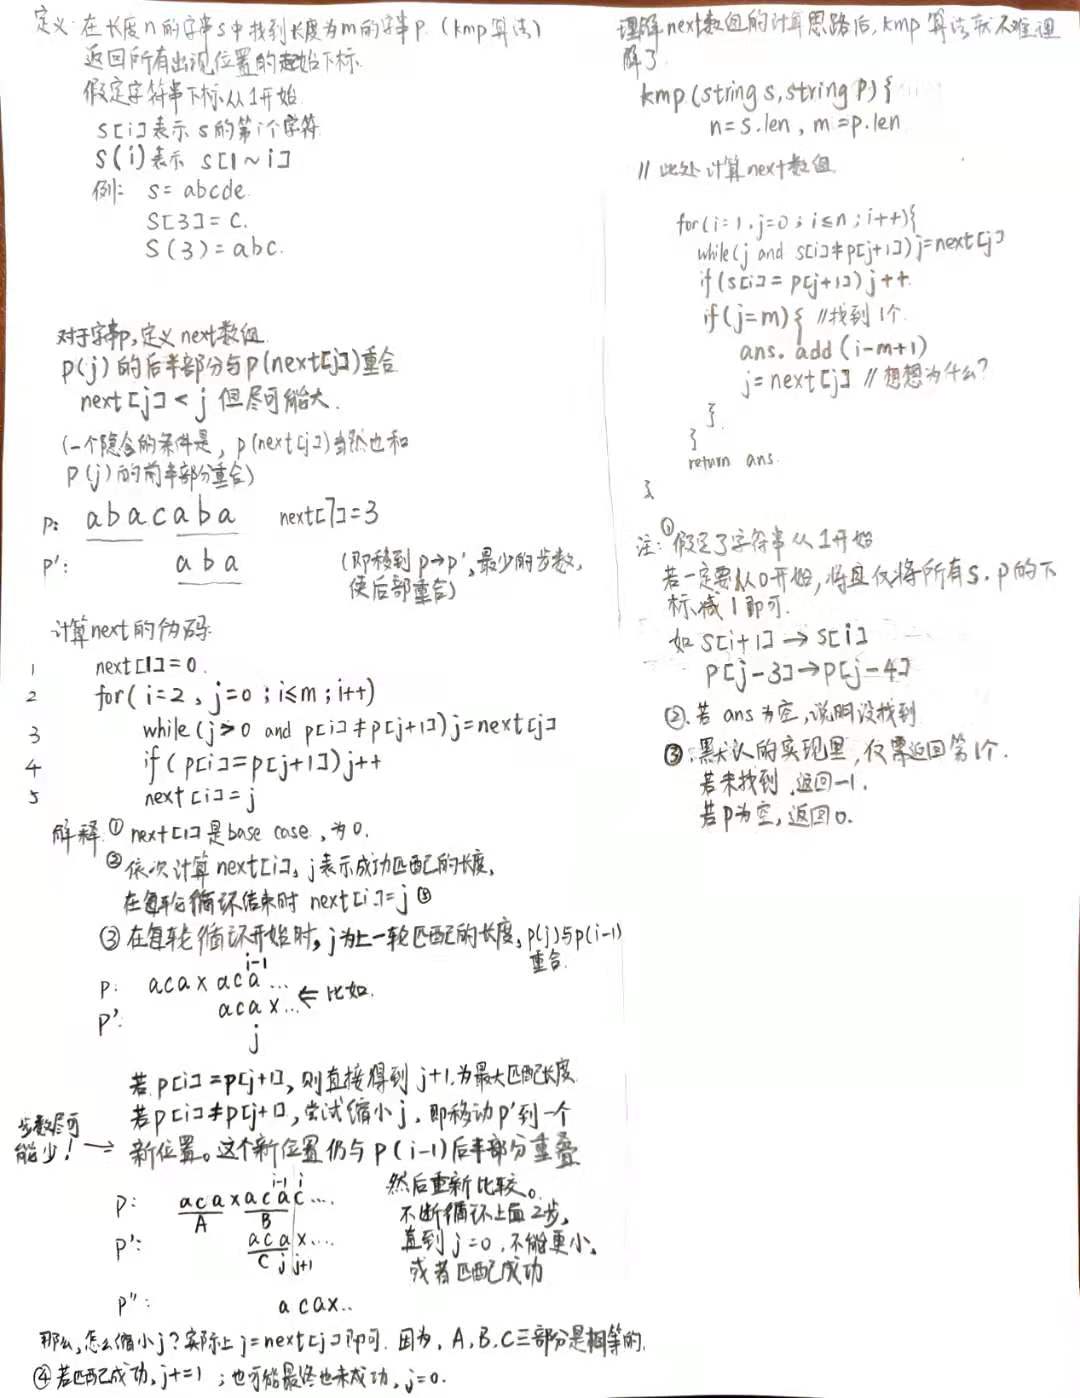 定义:在长度n的字串s中找到长度为m的字串p.(kmp算法)
返回所有出现位置的起始下标.
假定字符串下标从1开始.
s[i]表示s的第i个字符
S(i)表示 S[1~i]
例: S=abcde.
S[3]=C.
S(3)=abc.
对于字串p,定义next数组.
P(j)的后半部分与P(next[j])重合
next[j]<j 但尽可能大.
(一个隐含的条件是, p(next[j])当然也和
P(j)的前半部分重合)
P: abacaba next[7]=3
P': aba (即移到p→p',最少的步数,
使后部重合)
计算next的伪码:
1 next[1]=0.
2 for(i=2, j=0; i≤m; i++)
3 while(j>0 and p[i]≠p[j+1])j=next[j]
4 if(p[i]=p[j+1])j++
5 next[i]=j
解释:① next[1]是base case,为0.
②依次计算next[i],j表示成功匹配的长度,
在每轮循环结束时 next[i]=j ⑤
③在每轮循环开始时,j为上一轮匹配的长度,p(j)与p(i-1)
重合.
i-1
P: acaxaca...
P': acax... ⇐比如.
j
若p[i]=p[j+1],则直接得到j+1.为最大匹配长度
若p[i]≠p[j+1],尝试缩小j,即移动p'到一个
新位置。这个新位置仍与P(i-1)后半部分重叠
步数尽可
能少! →
i-1 i
P: acaxacac....
A B
P': acax....
C j j+1
P'': acax..
然后重新比较。
不断循环上面2步,
直到j=0,不能更小.
或者匹配成功
那么,怎么缩小j?实际上j=next[j]即可.因为,A,B,C三部分是相等的.
④若匹配成功,j+=1;也可能最终也未成功,j=0.
理解next数组的计算思路后,kmp算法就不难理
解了.
kmp(string s,string p){
n=s.len, m=p.len
// 此处计算next数组
for(i=1,j=0; i≤n; i++){
while(j and s[i]≠p[j+1])j=next[j]
if(s[i]=p[j+1])j++
if(j=m){ //找到1个.
ans.add(i-m+1)
j=next[j] //想想为什么?
}
}
return ans.
}
注:①假定了字符串从1开始
若一定要从0开始,将且仅将所有S.P的下
标减1即可.
如S[i+1]→S[i]
P[j-3]→P[j-4]
②.若ans为空,说明没找到
③.默认的实现里,仅需返回第1个.
若未找到,返回-1.
若p为空,返回0.